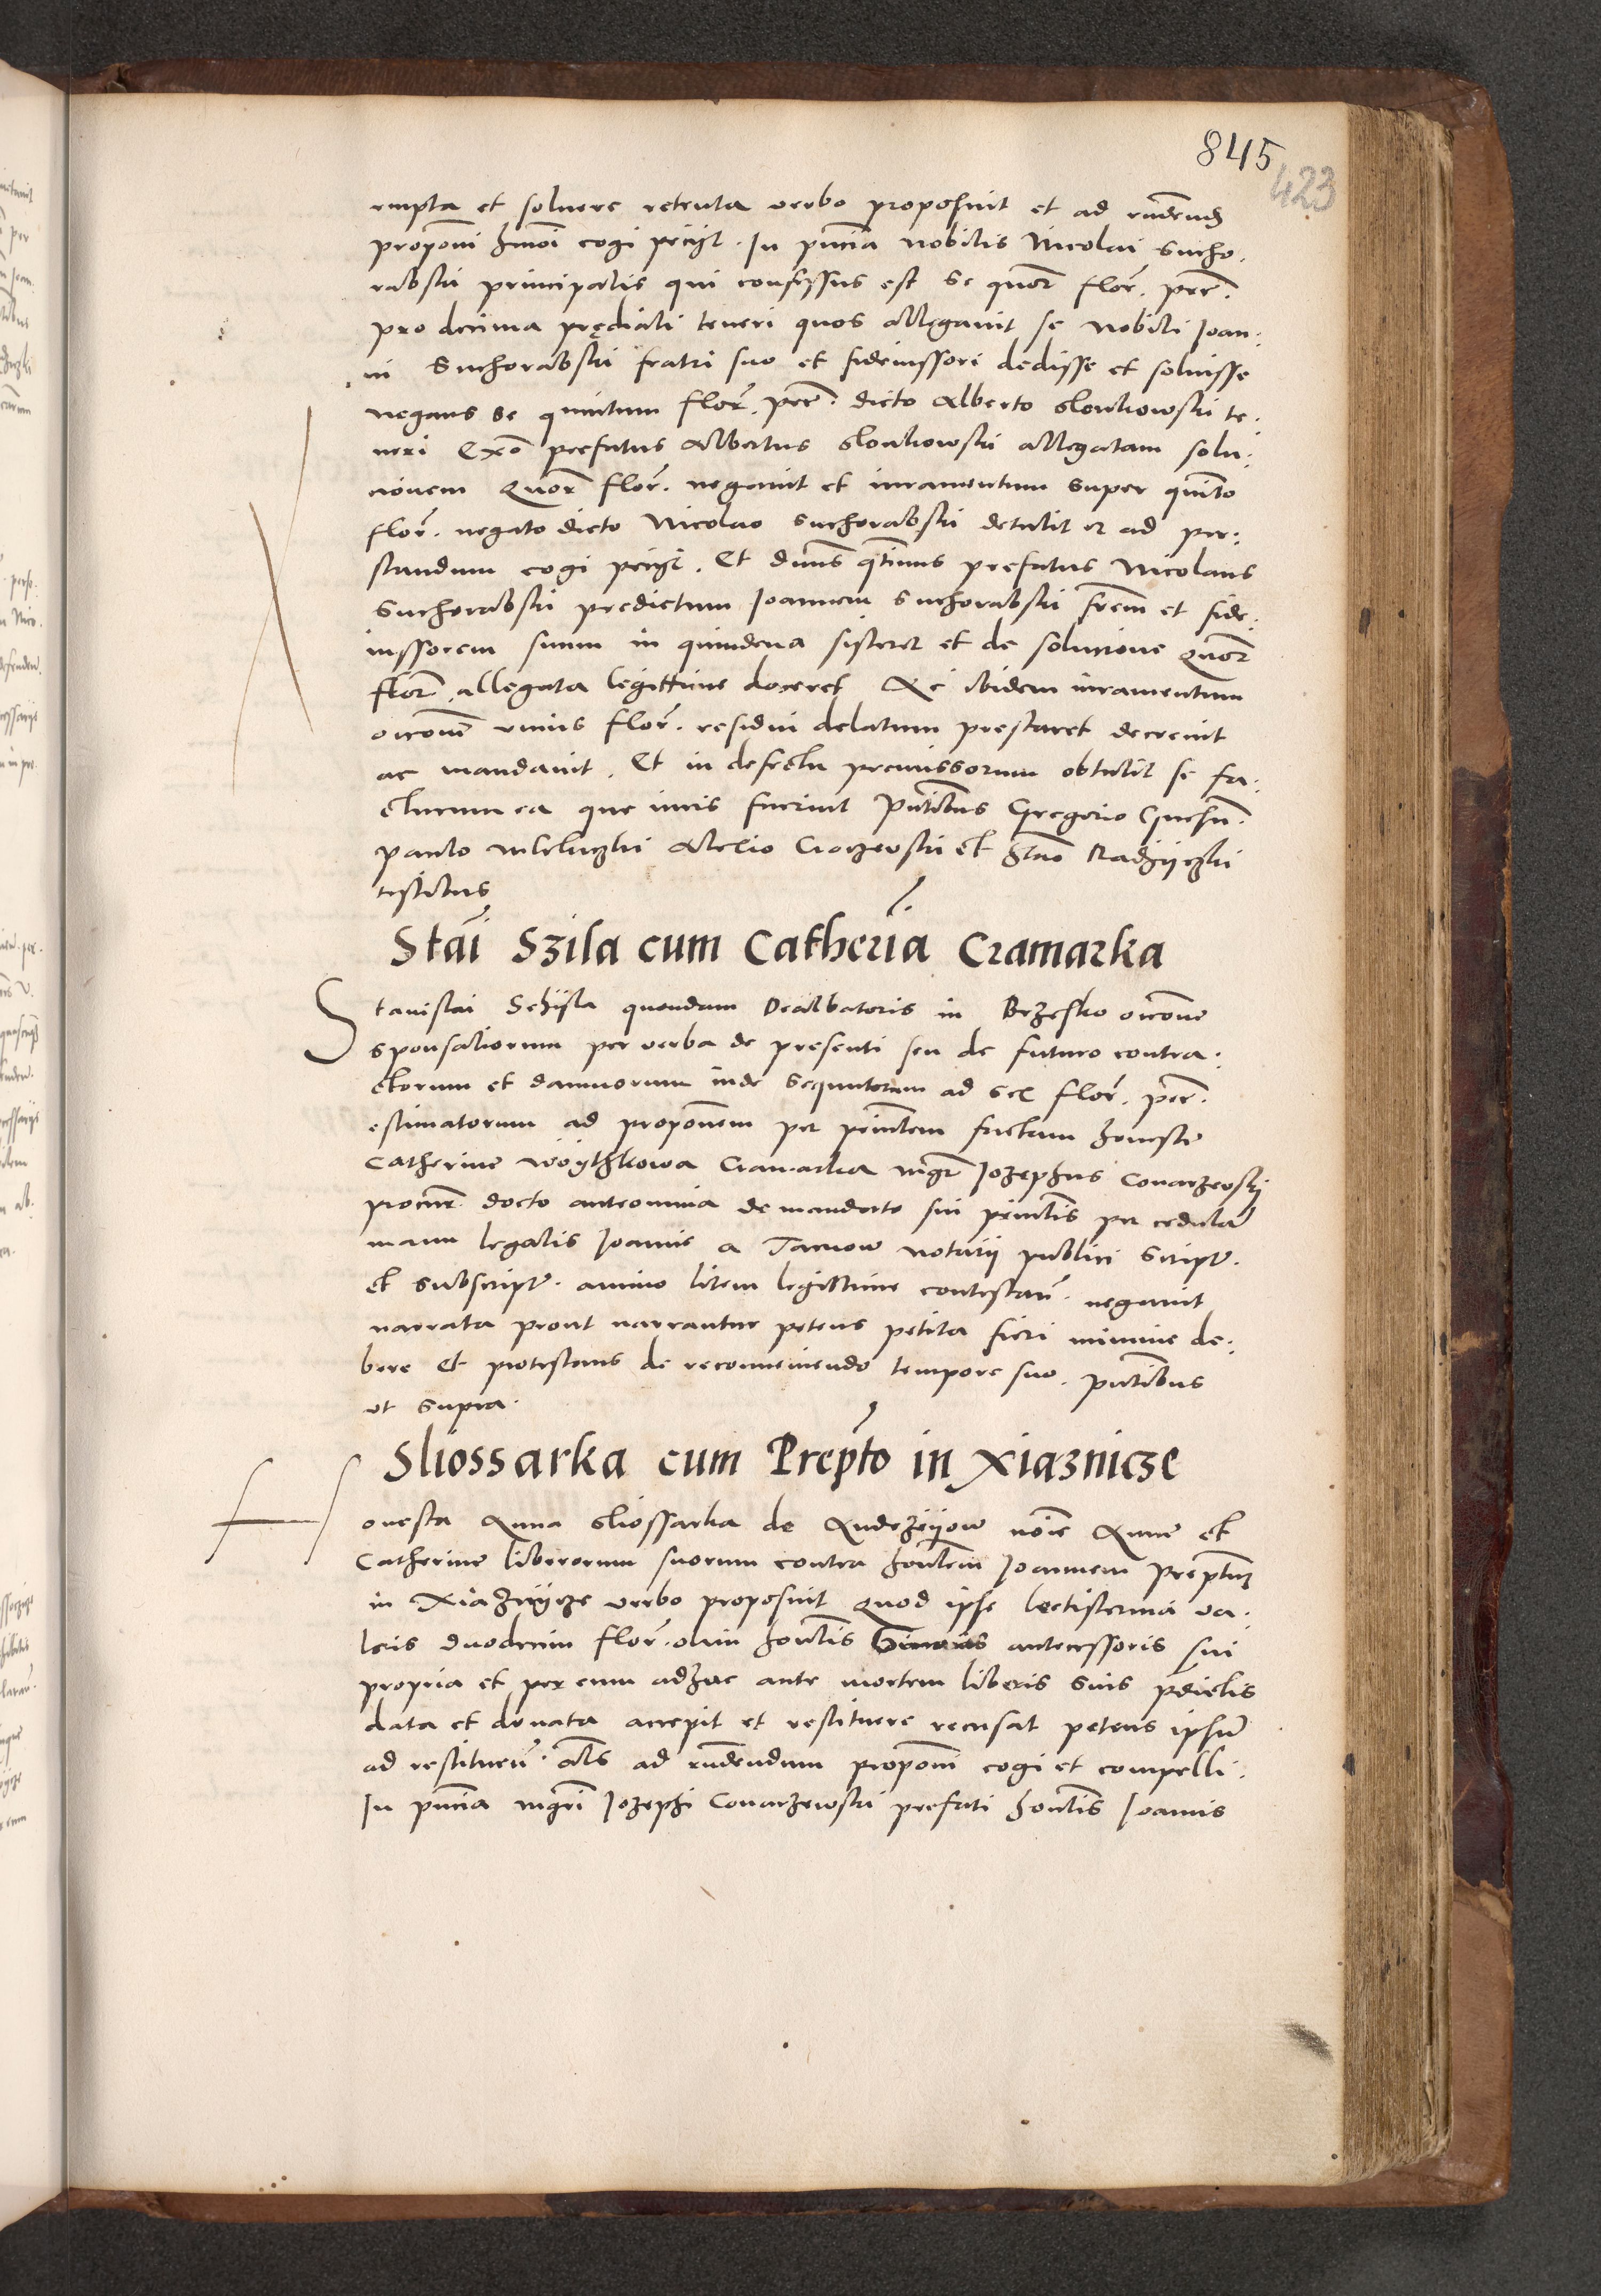 845
423
empta et soluere retenta verbo proposuit et ad rndend
proponi hmoi cogi peciit. In pncia nobilis Nicolai Sucho,
rabski principalis qui confessus est se quor flor. pecc.
pro decima prędiali teneri quos allęgauit se nobili Joan:
ni Suchorabski fratri suo et fideiussori dedisse et soluisse
negans se quintum flor. pecc. dicto Alberto Slonkowski te:
neri Exo prefatus Albertus Slonkowski allegatam solu:
cionem Quor flor. negauit et iuramentum super quinto
flor. negato dicto Nicolao Suchorabski detulit et ad pre:
standum cogi peciit. Et dnus qtinus prefatus Nicolaus
Suchorabski predictum Joannem Suchorabski frem et fide:
iussorem suum in quindena sisteret et de solucione Quor
flor allegata legittime doceret Ac ibidem iuramentum
occone unius flor. residui delatum prestaret decreuit
ac mandauit. Et in defectu premissorum obtulit se fa:
cturum ea que iuris fuerint Pntibus Gregorio
Paulo Alexio et Stao
testibus
Stai Szila cum Catheria Cramarka
Stanislai Schyla quondam Dealbatoris in Brzesko occone
sponsaliorum per verba de presenti seu de futuro contra:
ctorum et damnorum inde sequutorum ad sex flor. pecc.
estimatorum ad proponem per princtem factam honeste
Catherine Woythkowa Cramarka mgr Jozephus Conarzewski
procur docto anteomnia de mandato sui principlis per cedulam
manu legalis Joannis a Tarnow notarii publici script.
et subscript. animo litem legittime contestan. negauit
narrata prout narrantur petens petita fieri minime de:
bere Et protestans de reconueniendo tempore suo. Pntibus
ut supra.
Sliossarka cum Prepto in Xiaznicze
Honesta Anna Sliossarka de Andrzeyow noie Anne et
Catherine liberorum suorum contra honlem Joannem Preptum
in Xiaznycze verbo proposuit Quod ipse lectisternia va:
loris duodecim flor. olim honlis antecessoris sui
propria et per eum adhuc ante mortem liberis suis pdictis
data et donata accepit et restituere recusat petens ipsum
ad restituen. als ad rndendum proponi cogi et compelli.
In pncia mgri Jozephi Conarzewski prefati honlis Joannis